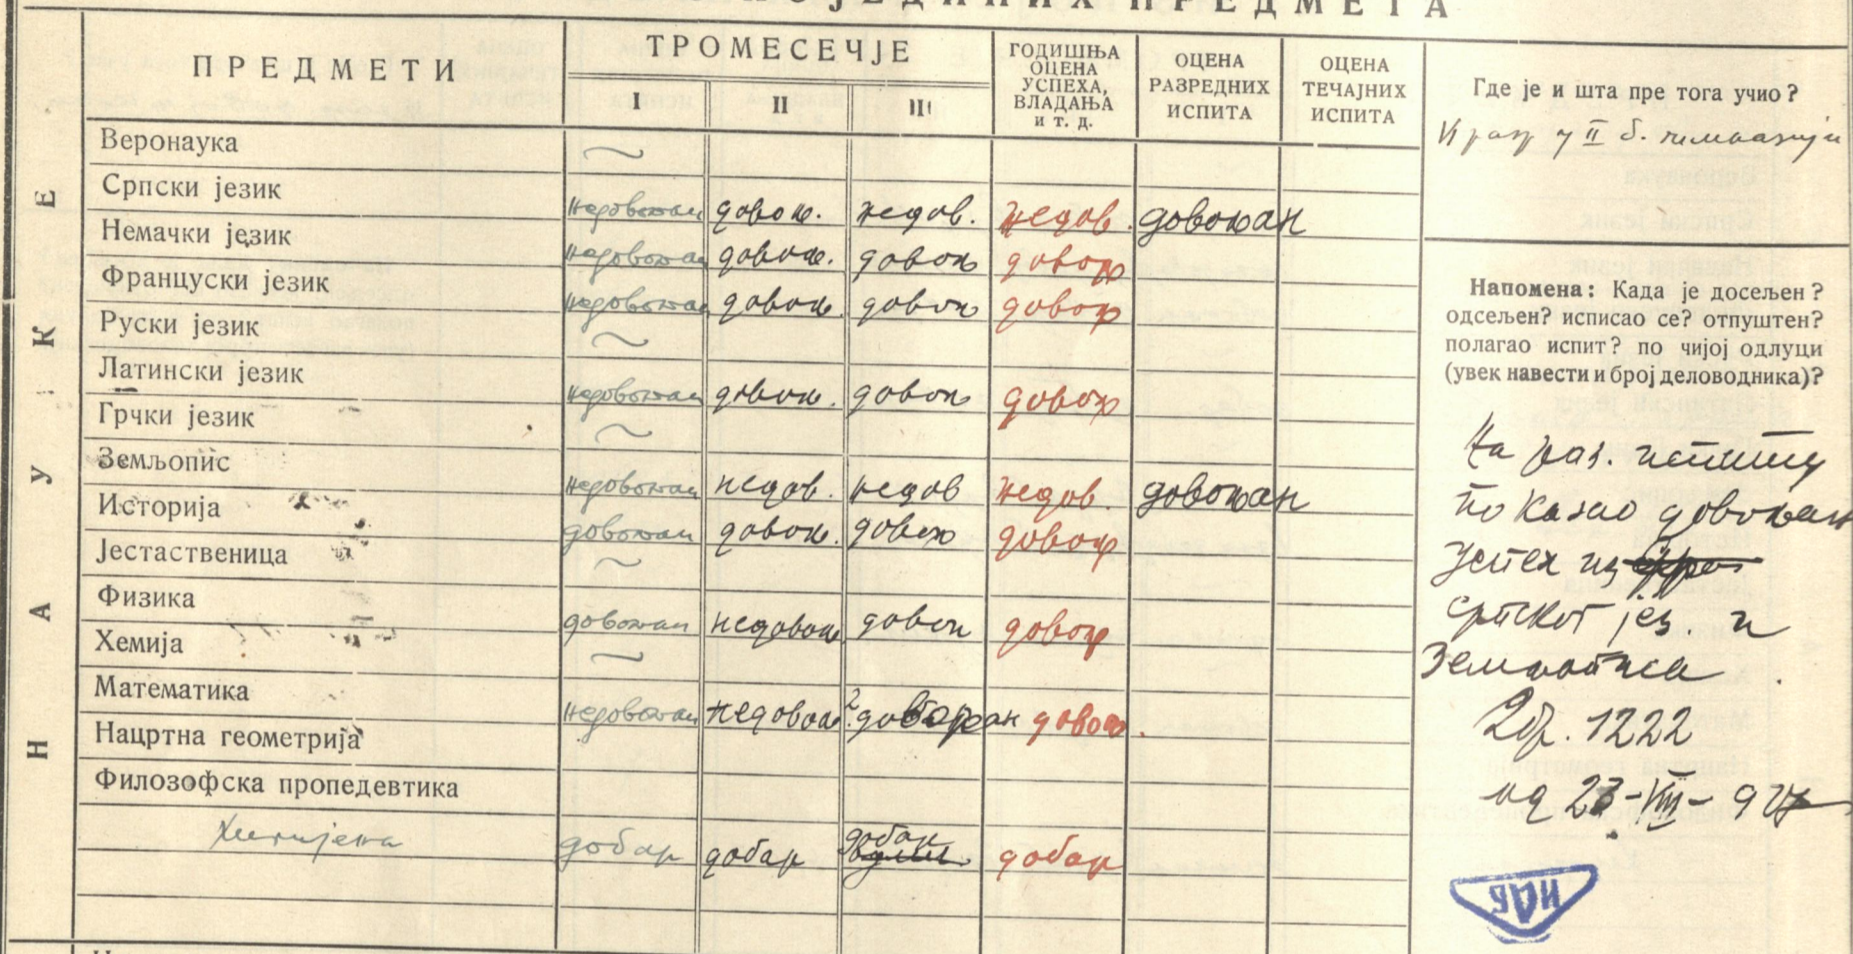 ПОЈЕДИНИХ ПРЕДМЕТА
ПРЕДМЕТИ
ТРОМЕСЕЧЈЕ
I II III
ГОДИШЊА
ОЦЕНА
УСПЕХА,
ВЛАДАЊА
и т. д.
ОЦЕНА
РАЗРЕДНИХ
ИСПИТА
ОЦЕНА
ТЕЧАЈНИХ
ИСПИТА
НАУКЕ
Веронаука ~
Српски језик недовољан довољ. недов. недов. довољан
Немачки језик недовољан довољ. довољ довољ
Француски језик недовољан довољ. довољ довољ
Руски језик ~
Латински језик недовољан довољ. довољ довољ
Грчки језик ~
Земљопис недовољан недов. недов недов. довољан
Историја довољан довољ. довољ довољ
Јестаственица ~
Физика довољан недовољ. довољ довољ
Хемија ~
Математика недовољан недовољ. довољан довољ.
Нацртна геометрија
Филозофска пропедевтика
Хигијена добар добар добар добар
Где је и шта пре тога учио?
у II б. гимназији
Напомена: Када је досељен?
одсељен? исписао се? отпуштен?
полагао испит? по чијој одлуци
(увек навести и број деловодника)?
На раз. испиту
показао довољан
успех из
српског јез. и
Земљописа.
Дбр. 1222
од 23-VIII-
ИАБ